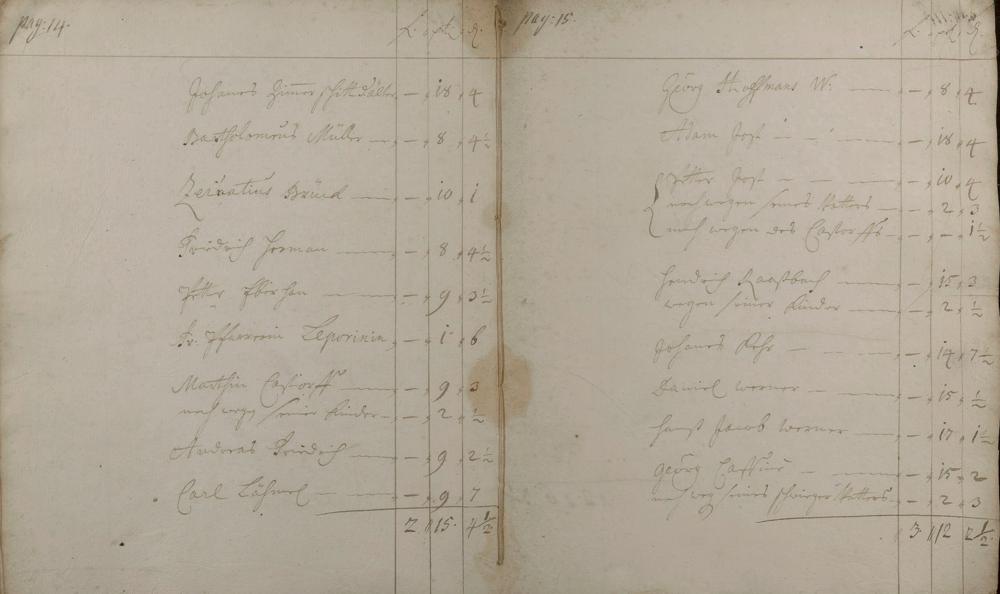 pag: 14.
Johanes Zimerschitt d'älter — — 18 4
Bartholomeus Müller — — 8 4½
Zervatius Brück — — 10 1
Friedrich Herman — — 8 4½
Petter — — 9 3½
Fr. Pfarrerin Leporinin — 1 6
Marthin Castorff — — 9 3
noch wegen seiner Kinder — — 2 ½
Andreas Friedrich — — 9 2½
Carl Löhmel — — 9 7
2 15 4½
pag: 15.
Georg Hoffmans W: — — 8 4
Adam Jost — — 18 4
Petter Jost — — 10 4
noch wegen seines Vetters — — 2 3
noch wegen des Castorffs — — — 1½
Hendrich — 15 3
wegen seiner Kinder — — 2 ½
Johanes Rohr — — 14 7½
Daniel Werner — — 15 ½
Hanß Jacob Werner — — 17 1½
Georg — — 15 2
noch weg seines schwieger Vatters — — 2 3
3 12 2½